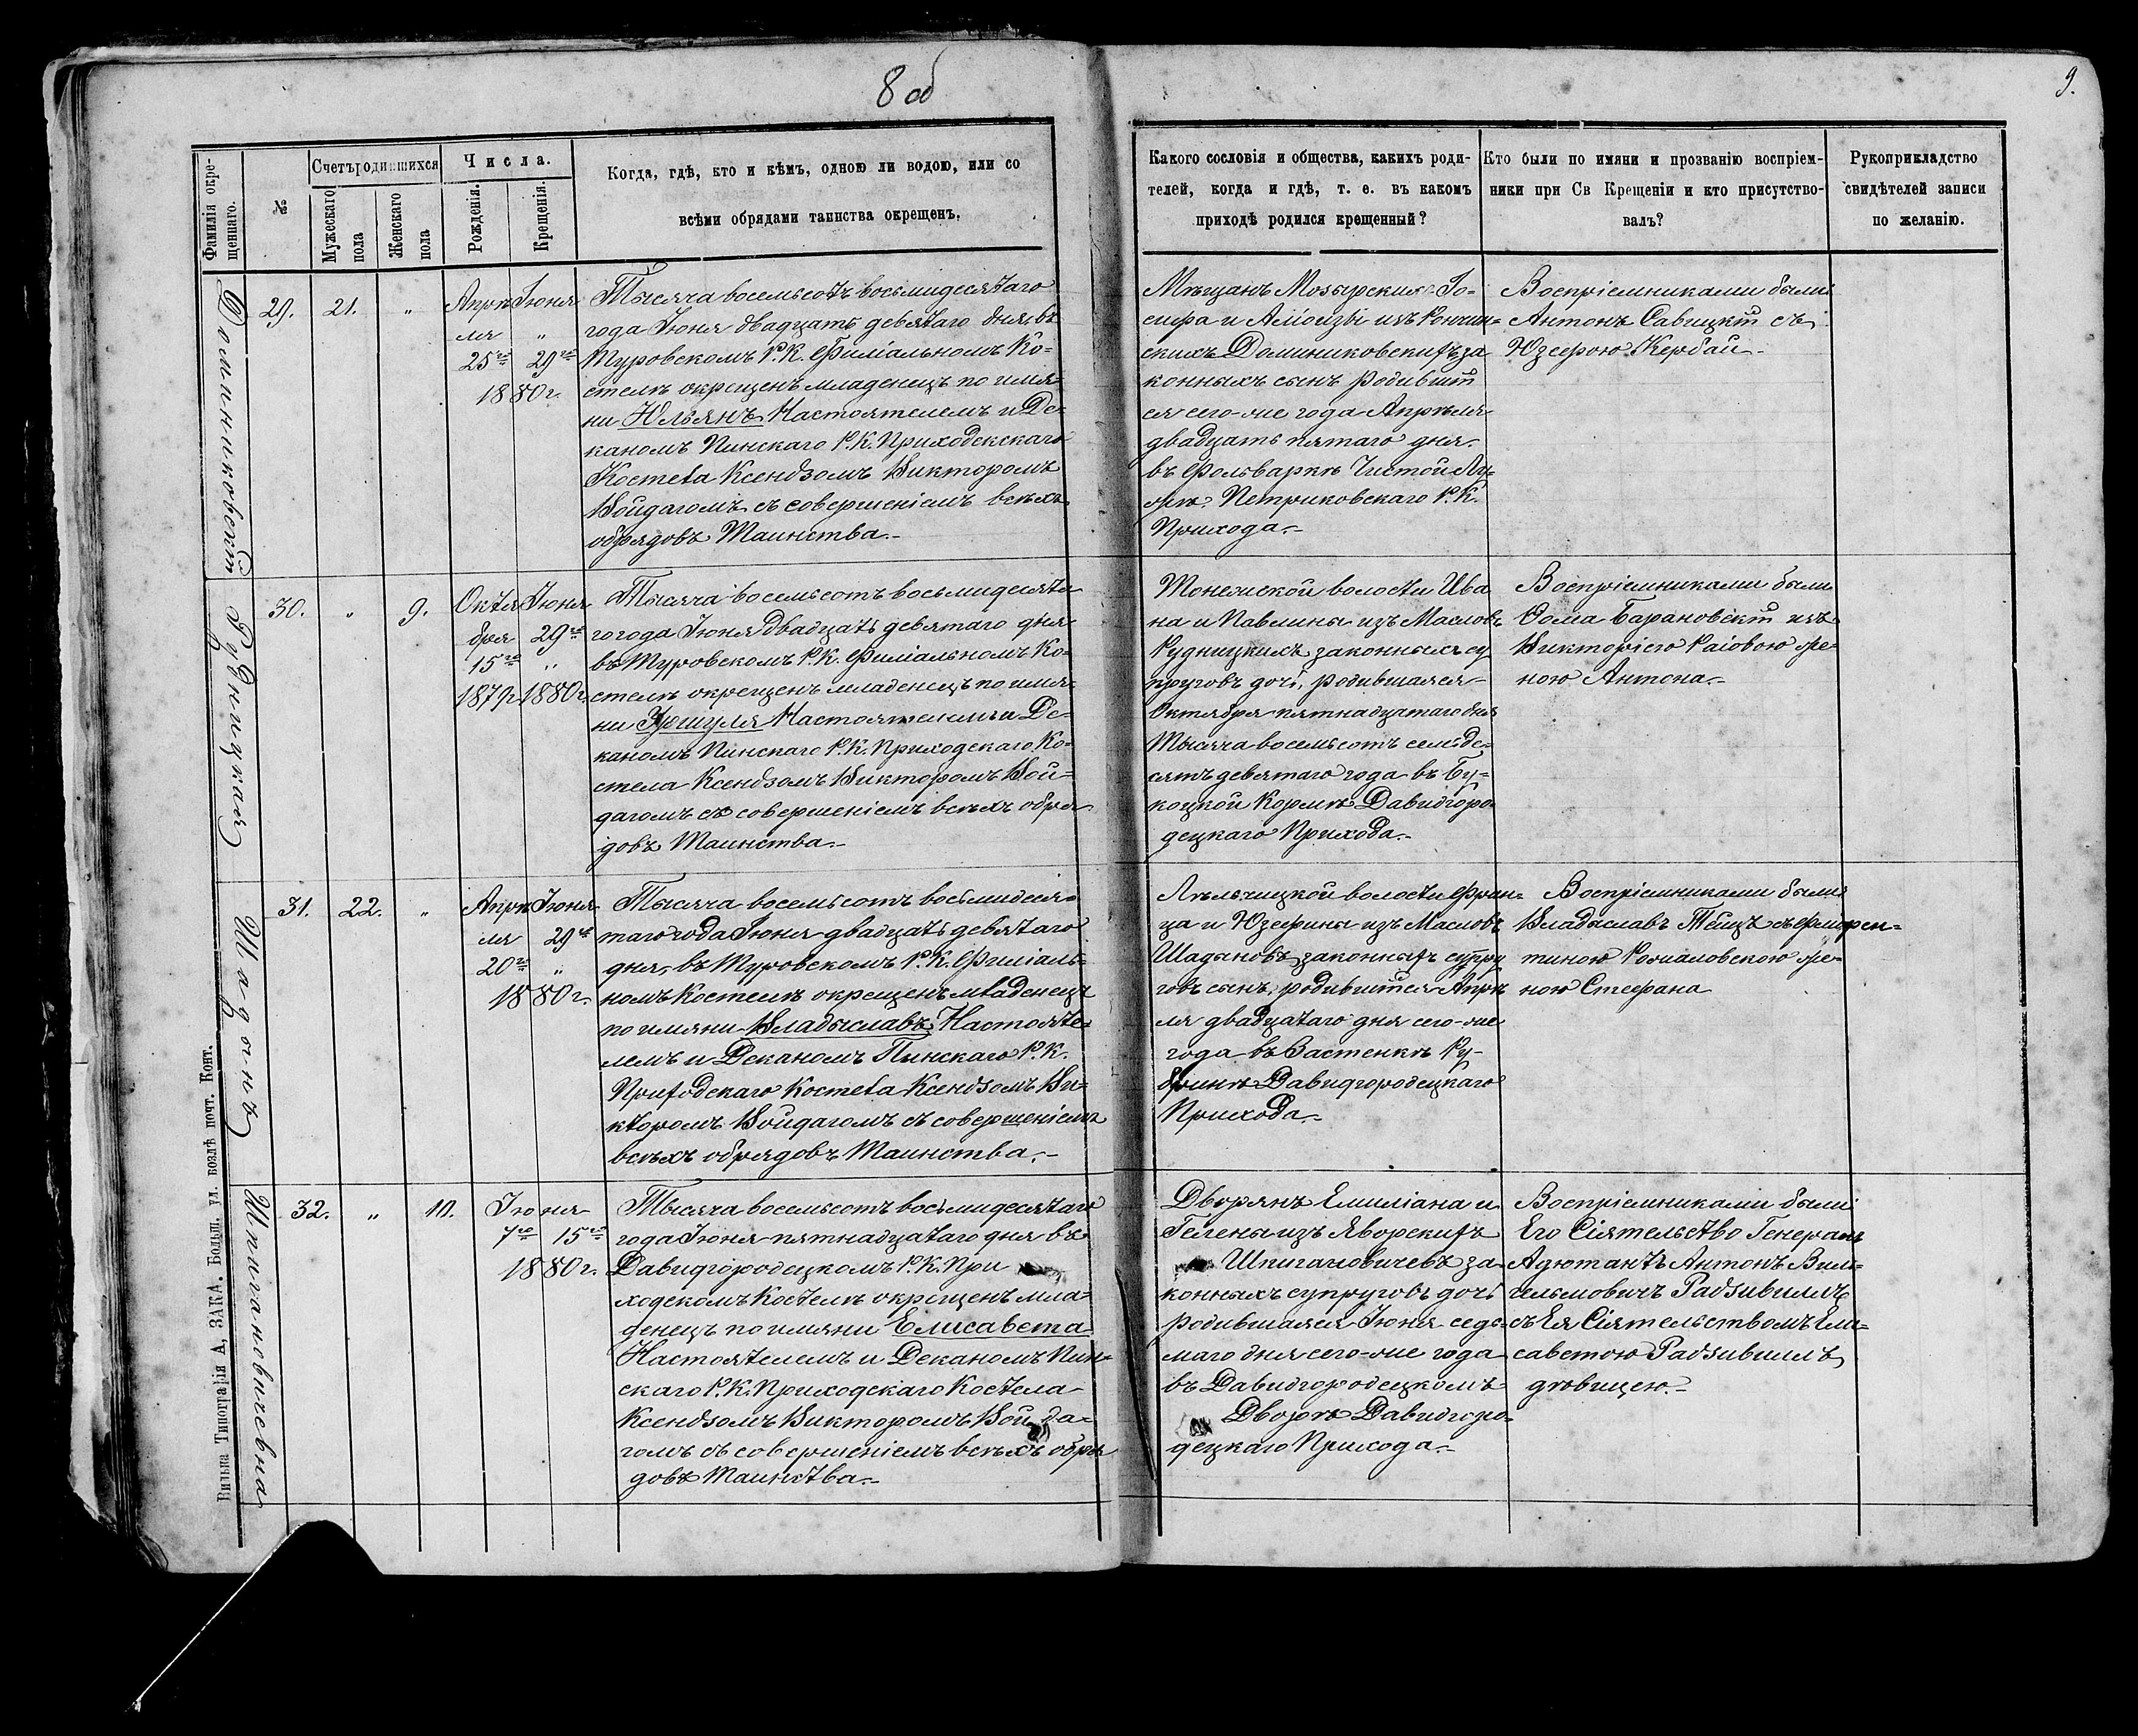 8 об
9.
Фамилія окре-
щеннаго.
№
Счетъ родившихся
Мужескаго
пола
Женскаго
пола
Числа.
Рожденія.
Крещенія.
Когда, гдѣ, кто и кѣмъ, одною ли водою, или со
всѣми обрядами таинства окрещенъ.
Какого сословія и общества, какихъ роди-
телей, когда и гдѣ, т. е. въ какомъ
приходѣ родился крещенный?
Кто были по имяни и прозванію воспріем-
ники при Св Крещеніи и кто присутство-
валъ?
Рукоприкладство
свидѣтелей записи
по желанію.
Доминиковскій
29.
21.
"
Апрѣ
ля
25го
Іюня
"
29го
1880г.
Тысяча восемьсотъ восьмидесятаго
года Іюня двадцать девятаго дня, въ
Туровскомъ Р.К. Филіальномъ Ко-
стелѣ окрещенъ младенецъ по имя-
ни Юльянъ Настоятелемъ и Де-
каномъ Пинскаго Р.К. Приходскскаго
Костела Ксендзомъ Викторомъ
Войдагомъ съ совершеніемъ всѣхъ
обрядовъ Таинства.-
Мѣщанъ Мозырскихъ Іо-
сифа и Алоизіи изъ
скихъ Доминиковскихъ за
конныхъ сынъ родивший
ся сего-же года Апрѣля
двадцать пятаго дня
въ фольваркѣ Чистой Лу-
жѣ Петриковскаго Р.К.
Прихода.-
Воспріемниками были
Антонъ Савицкій съ
Юзефою Кербай.-
Рудницкая
30.
"
9.
Октя
бря
15го
1879г
Іюня
29го
"
1880г.
Тысяча восемьсотъ восьмидесята
го года Іюня двадцать девятаго дня
въ Туровскомъ Р.К. Филіальномъ Ко-
стелѣ окрещенъ младенецъ по имя-
ни Уршуля Настоятелемъ и Де-
каномъ Пинскаго Р.К. Приходскаго Ко-
стела Ксендзомъ Викторомъ Вой-
дагомъ съ совершеніемъ всѣхъ обря
довъ Таинства.-
Тонежской волости Ива
на и Павлины изъ Масловъ
Рудницкихъ законныхъ су
пруговъ дочь, родившаяся
Октября пятнадцатаго дня
Тысяча восемьсотъ семьде-
сятъ девятаго года въ Бу-
коцкой Кормѣ Давидгоро
децкаго Прихода.-
Воспріемниками были
Фома Барановскій изъ
Викторіею Раіовою же-
ною Антона.-
Шаданъ
31.
22.
"
Апрѣ
ля
20го
Іюня
29го
"
1880г.
Тысяча восемьсотъ восьмидеся-
таго года Іюня двадцать девятаго
дня, въ Туровскомъ Р.К. Филіаль-
номъ Костелѣ окрещенъ младенецъ
по имяни Владыславъ Настояте-
лемъ и Деканомъ Пинскаго Р.К.
Приходскаго Костела Ксендзомъ Ви-
кторомъ Войдагомъ съ совершеніемъ
всѣхъ обрядовъ Таинства.-
Лѣльчицкой волости Фран-
ца и Юзефины изъ Масловъ
Шадановъ законныхъ супру
говъ сынъ, родившійся Апрѣ
ля двадцатаго дня сего-же
года въ Застенкѣ Ру-
бринѣ Давидгородецкаго
Прихода.-
Воспріемниками были
Владыславъ съ Флорен-
тиною же-
ною Стефана
Шпигановичевна
32.
"
10.
Іюня
7го 15го
1880г.
Тысяча восемьсотъ восьмидесятаго
года Іюня пятнадцатаго дня въ
Давидгородецкомъ Р.К. При
ходскомъ Костелѣ окрещенъ мла-
денецъ по имяни Елисавета
Настоятелемъ и Деканомъ Пин-
скаго Р.К. Приходскаго Костела
Ксендзомъ Викторомъ Вой да-
гомъ съ совершеніемъ всѣхъ обря
довъ Таинства.-
Дворянъ Емиліана и
Гелены изъ Яворскихъ
Шпигановичевъ за
конныхъ супруговъ дочь
родившаяся Іюня седь-
маго дня сего-же года
въ Давидгородецкомъ
Дворѣ Давидгоро-
децкаго Прихода.-
Воспріемниками были
Его Сіятельство Генералъ
Адютантъ Антонъ Виль-
гельмовичъ Радзивиллъ
съ Ея Сіятельствомъ Ели-
саветою Радзивиллъ
дювицею.-
Вильна Типографія А, ЗАКА. Больш. ул. возлѣ почт. Конт.